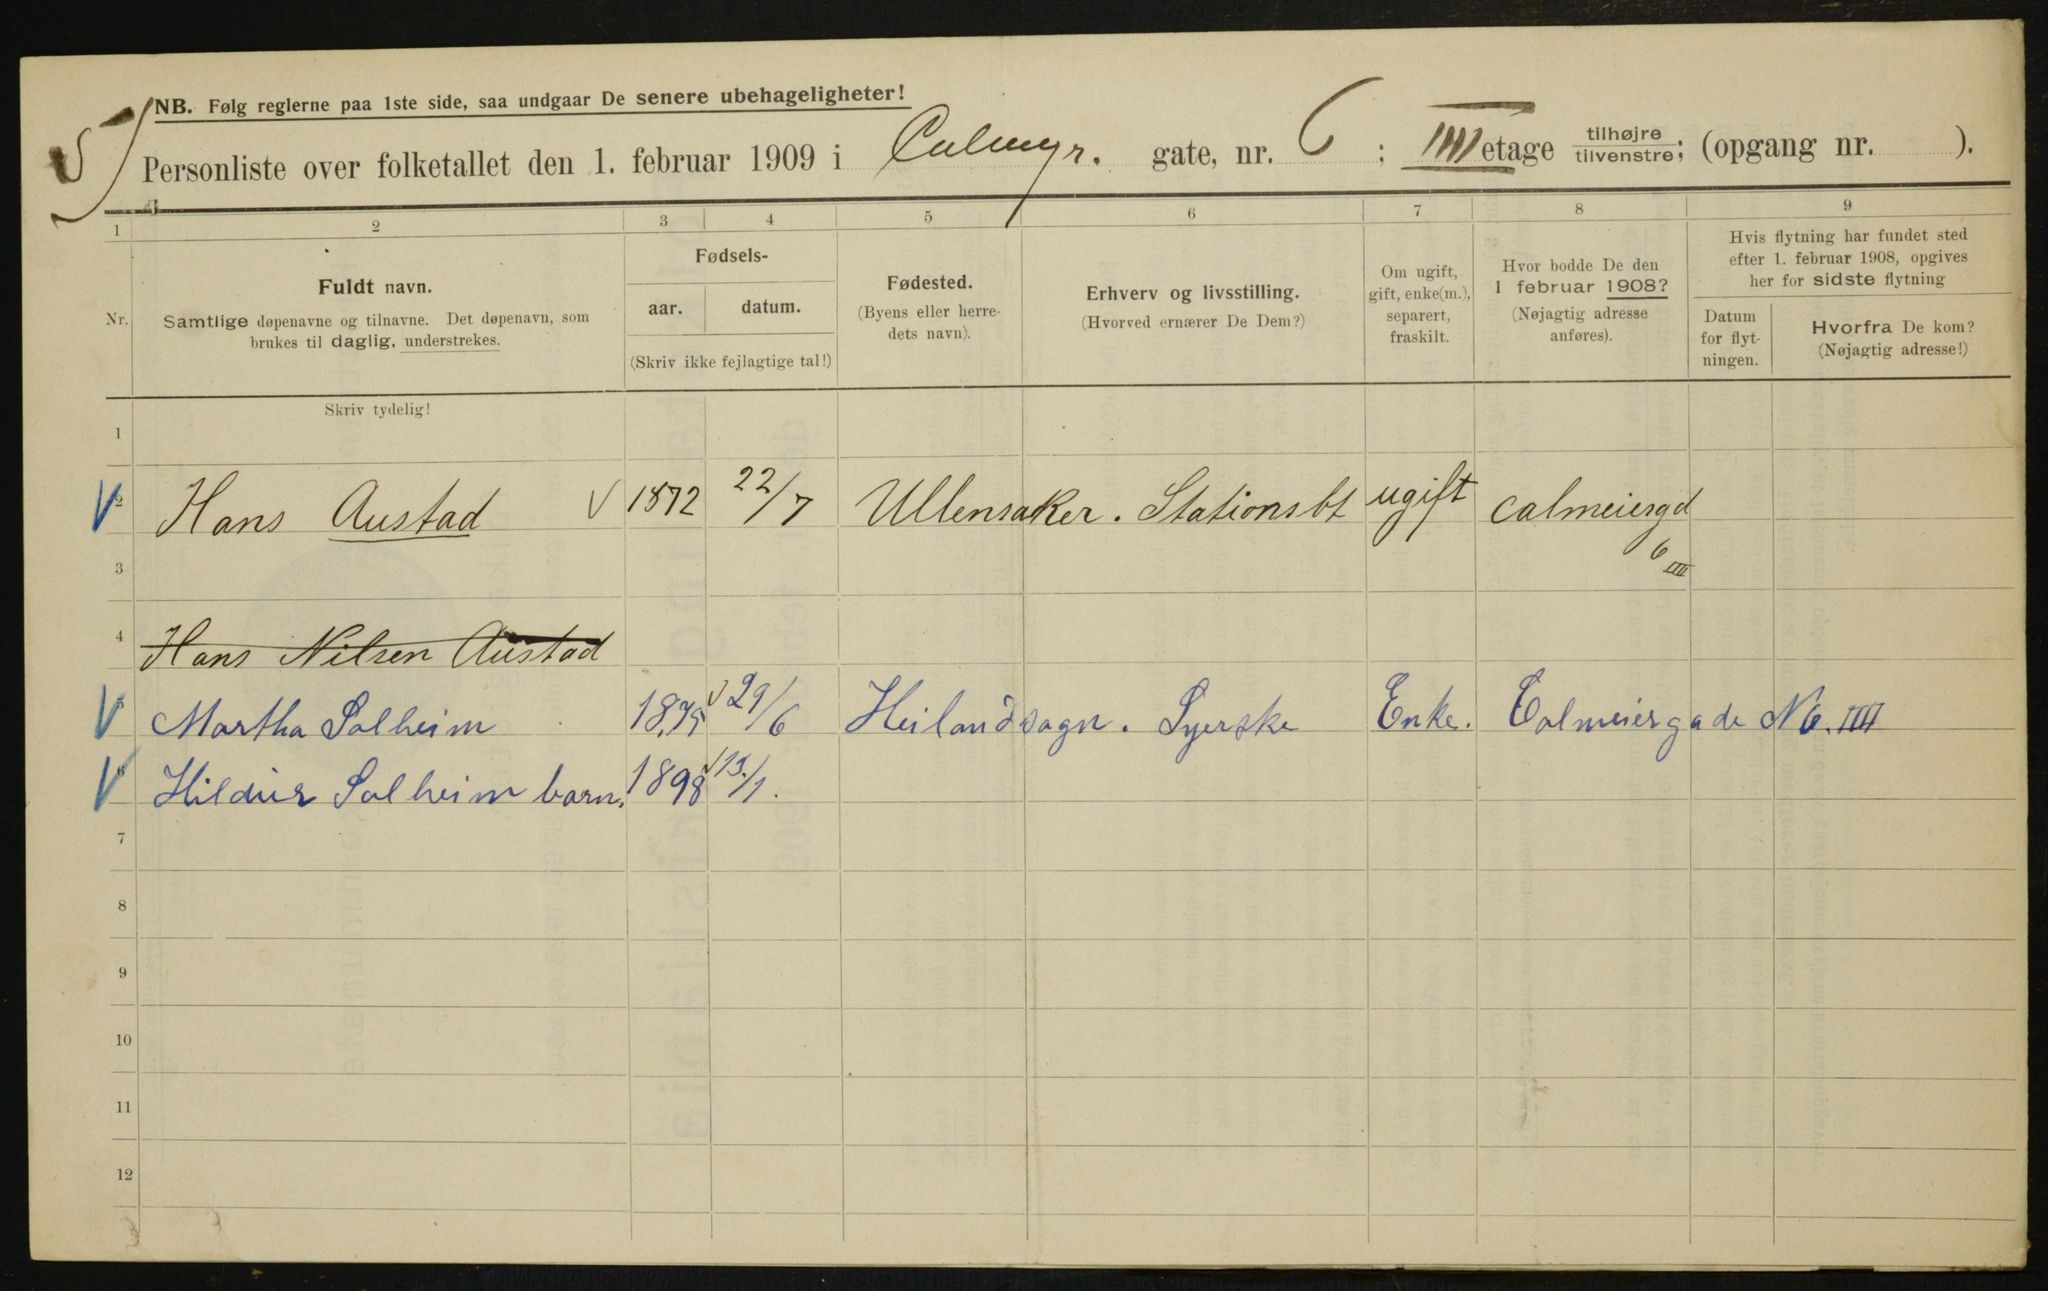 NB. Følg reglerne paa 1ste side, saa undgaar De senere ubehageligheter!
Personliste over folketallet den 1. februar 1909 i Calmeyr. gate, nr. 6 ; IIII etage tilhøjre tilvenstre; (opgang nr. ).
1 2 3 4 5 6 7 8 9
Nr.
Fuldt navn.
Samtlige døpenavne og tilnavne. Det døpenavn, som
brukes til daglig, understrekes.
Fødsels-
aar. datum.
(Skriv ikke fejlagtige tal!)
Fødested.
(Byens eller herre-
dets navn).
Erhverv og livsstilling.
(Hvorved ernærer De Dem?)
Om ugift,
gift, enke(m.),
separert,
fraskilt.
Hvor bodde De den
1 februar 1908?
(Nøjagtig adresse
anføres).
Hvis flytning har fundet sted
efter 1. februar 1908, opgives
her for sidste flytning
Datum
for flyt-
ningen.
Hvorfra De kom?
(Nøjagtig adresse!)
Skriv tydelig!
1
2 Hans Austad 1872 22/7 Ullensaker. Stationsbt ugift calmeiergd
6 IIII
3
4 Hans Nilsen Austad
Martha Solheim 1875 29/6 Heilandsogn. Syerske Enke. Calmeiergade N 6. IIII
Hildur Solheim barn. 1898 13/1.
7
8
9
10
11
12